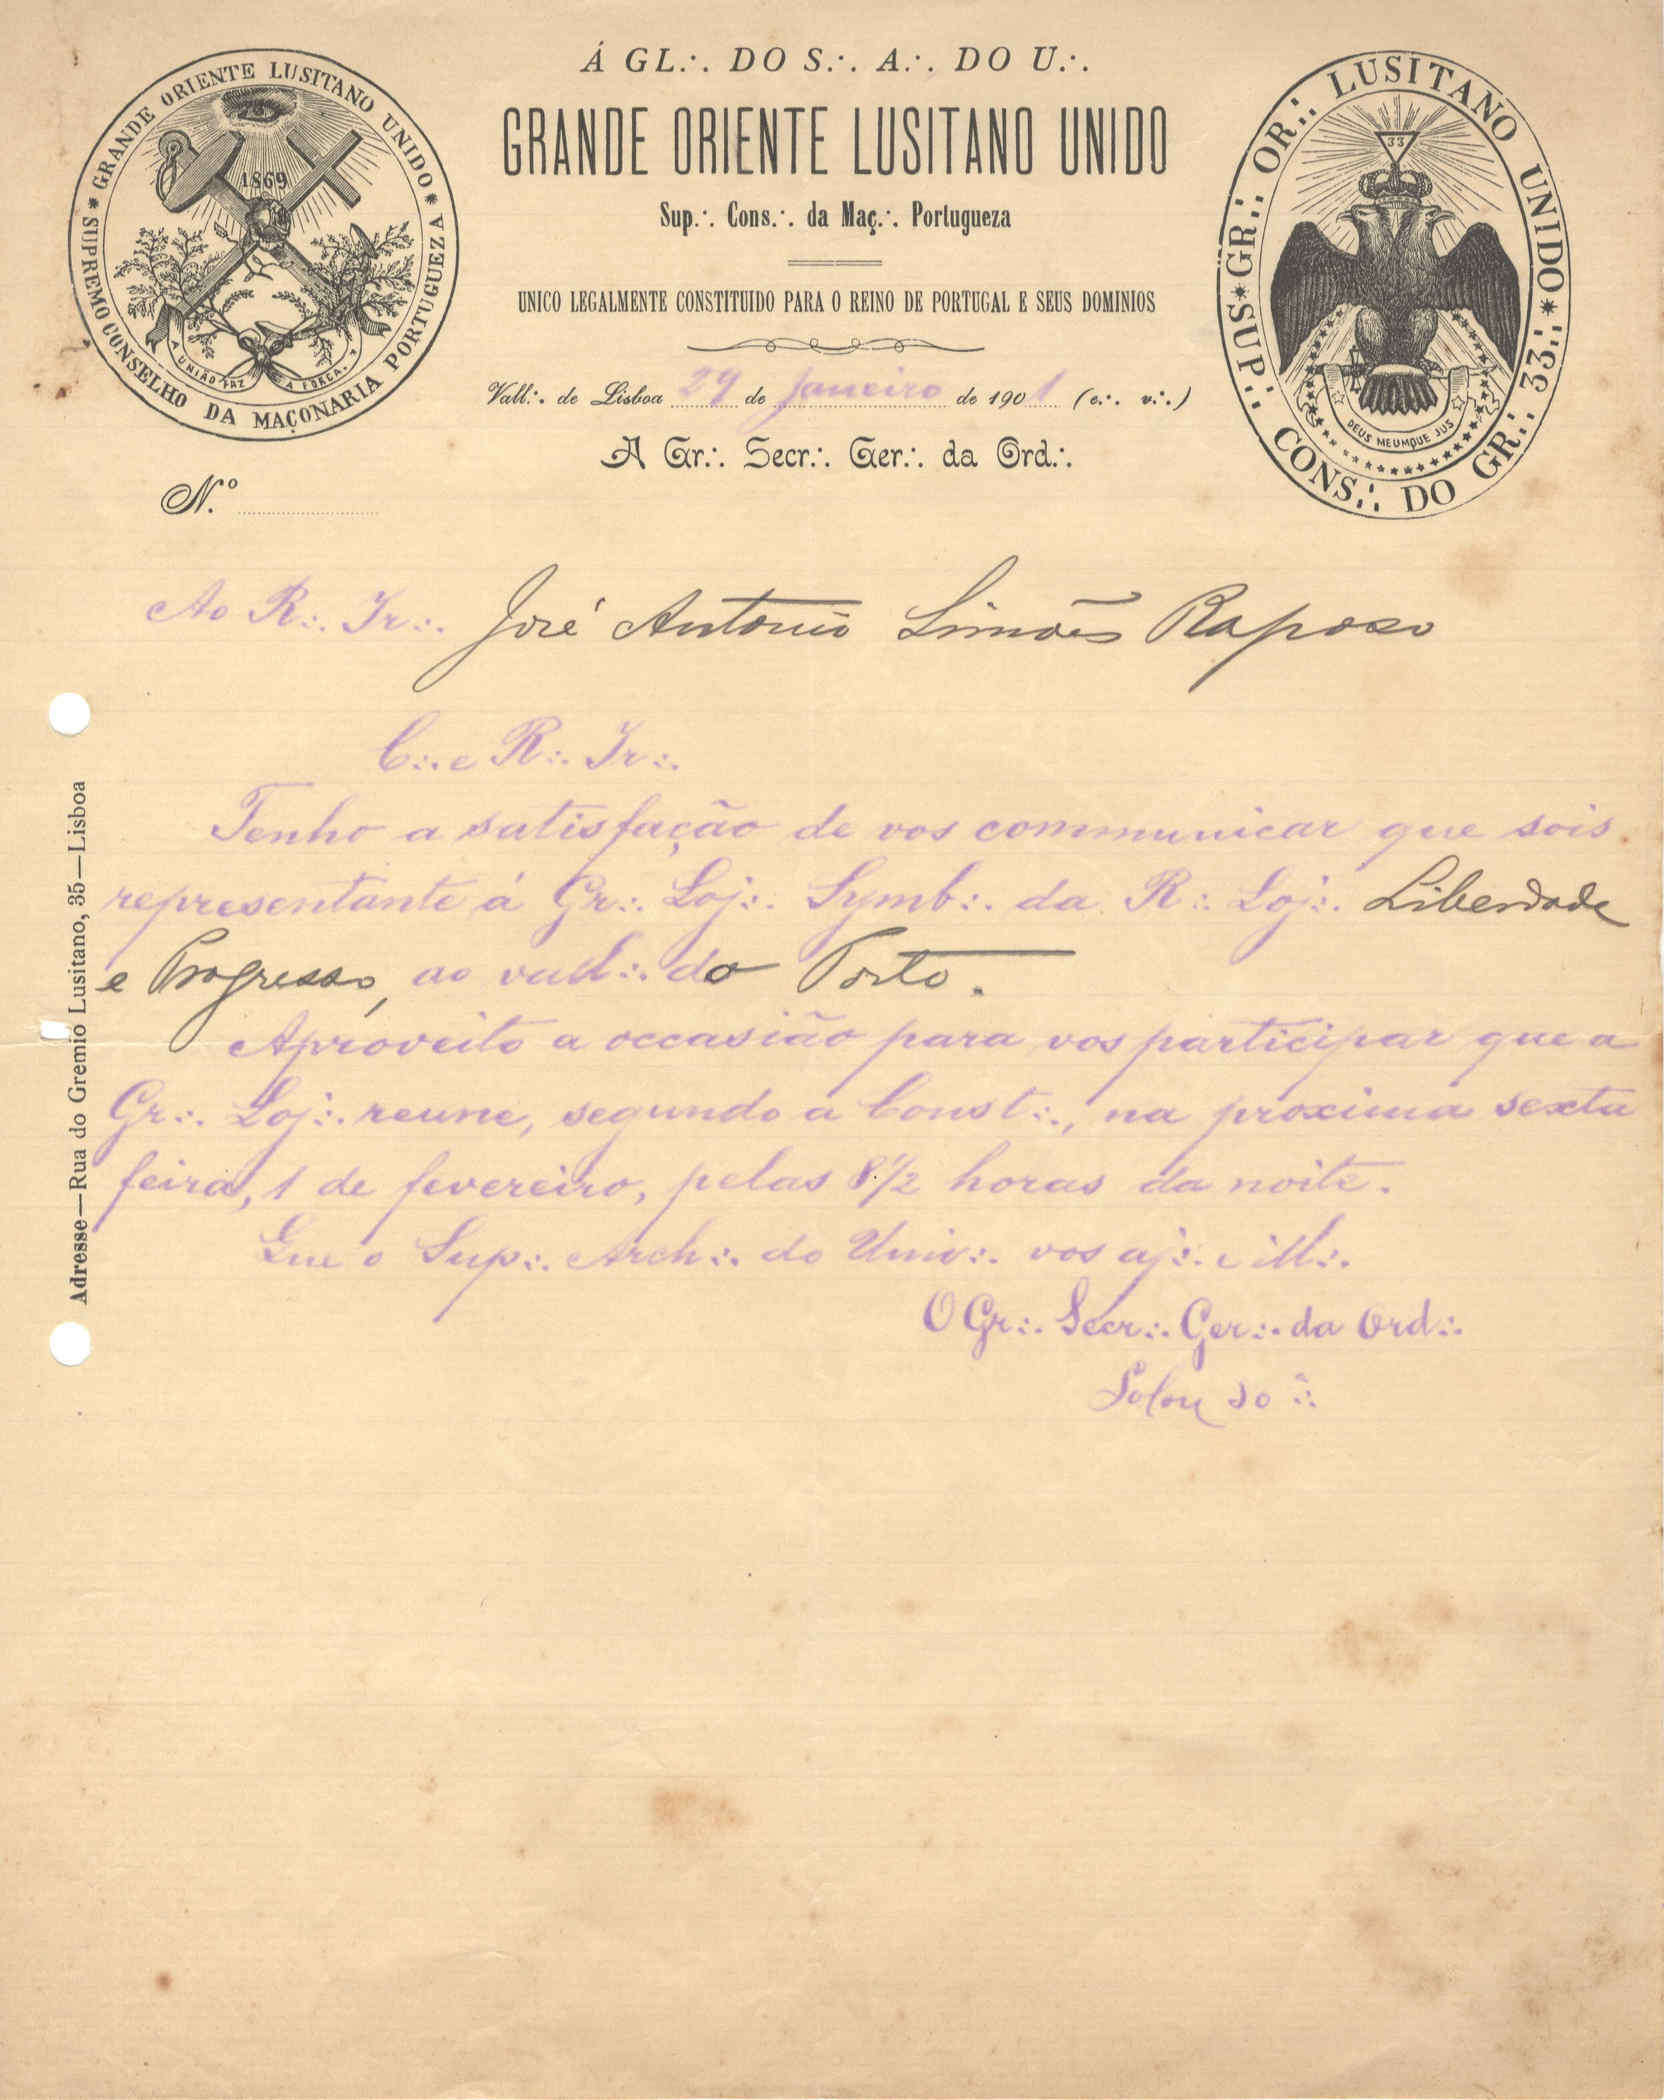 Á GL∴ DO S∴ A∴ DO U∴
GRANDE ORIENTE LUSITANO UNIDO
Sup∴ Cons∴ da Maç∴ Portugueza
UNICO LEGALMENTE CONSTITUIDO PARA O REINO DE PORTUGAL E SEUS DOMINIOS
Vall∴ de Lisboa 29 de janeiro de 1901 (e∴ v∴)
A Gr∴ Secr∴ Ger∴ da Ord∴
* GRANDE ORIENTE LUSITANO UNIDO *
SUPREMO CONSELHO DA MAÇONARIA PORTUGUEZA
1869
A UNIÃO FAZ A FORÇA
GR∴ OR∴ LUSITANO UNIDO *
SUP∴ CONS∴ DO GR∴ 33∴
33
DEUS MEUMQUE JUS
N.º
Ao R∴ Ir∴ José Antonio Simões Raposo
C∴ e R∴ Ir∴
Tenho a satisfação de vos communicar que sois
representante á Gr∴ Loj∴ Symb∴ da R∴ Loj∴ Liberdade
e Progresso, ao vall∴ do Porto.
Aproveito a occasião para vos participar que a
Gr∴ Loj∴ reune, segundo a Const∴, na proxima sexta
feira, 1 de fevereiro, pelas 8½ horas da noite.
Que o Sup∴ Arch∴ do Univ∴ vos aj∴ e ill∴
O Gr∴ Secr∴ Ger∴ da Ord∴
Adresse—Rua do Gremio Lusitano, 35—Lisboa